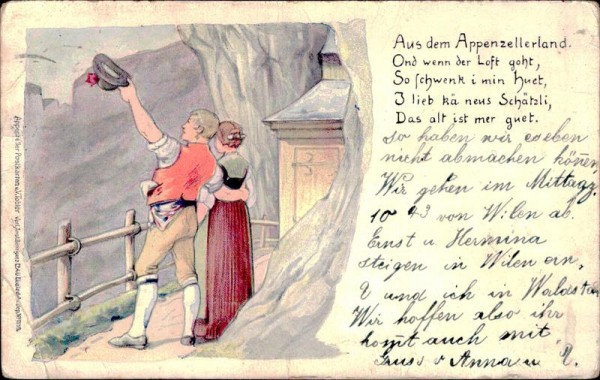 Aus dem Appenzellerland.
Ond wenn der Loft goht,
So schwenk i min Huet,
I lieb kä neus Schätzli,
Das alt ist mer guet.
so haben wir es eben
nicht abmachen können,
Wir gehen im Mittagz.
10 43 von Wilen ab.
Ernst u Hermina
steigen in Wilen an,
und ich in Waldst
Wir hoffen also ihr
komt auch mit,
Gruss v Anna u